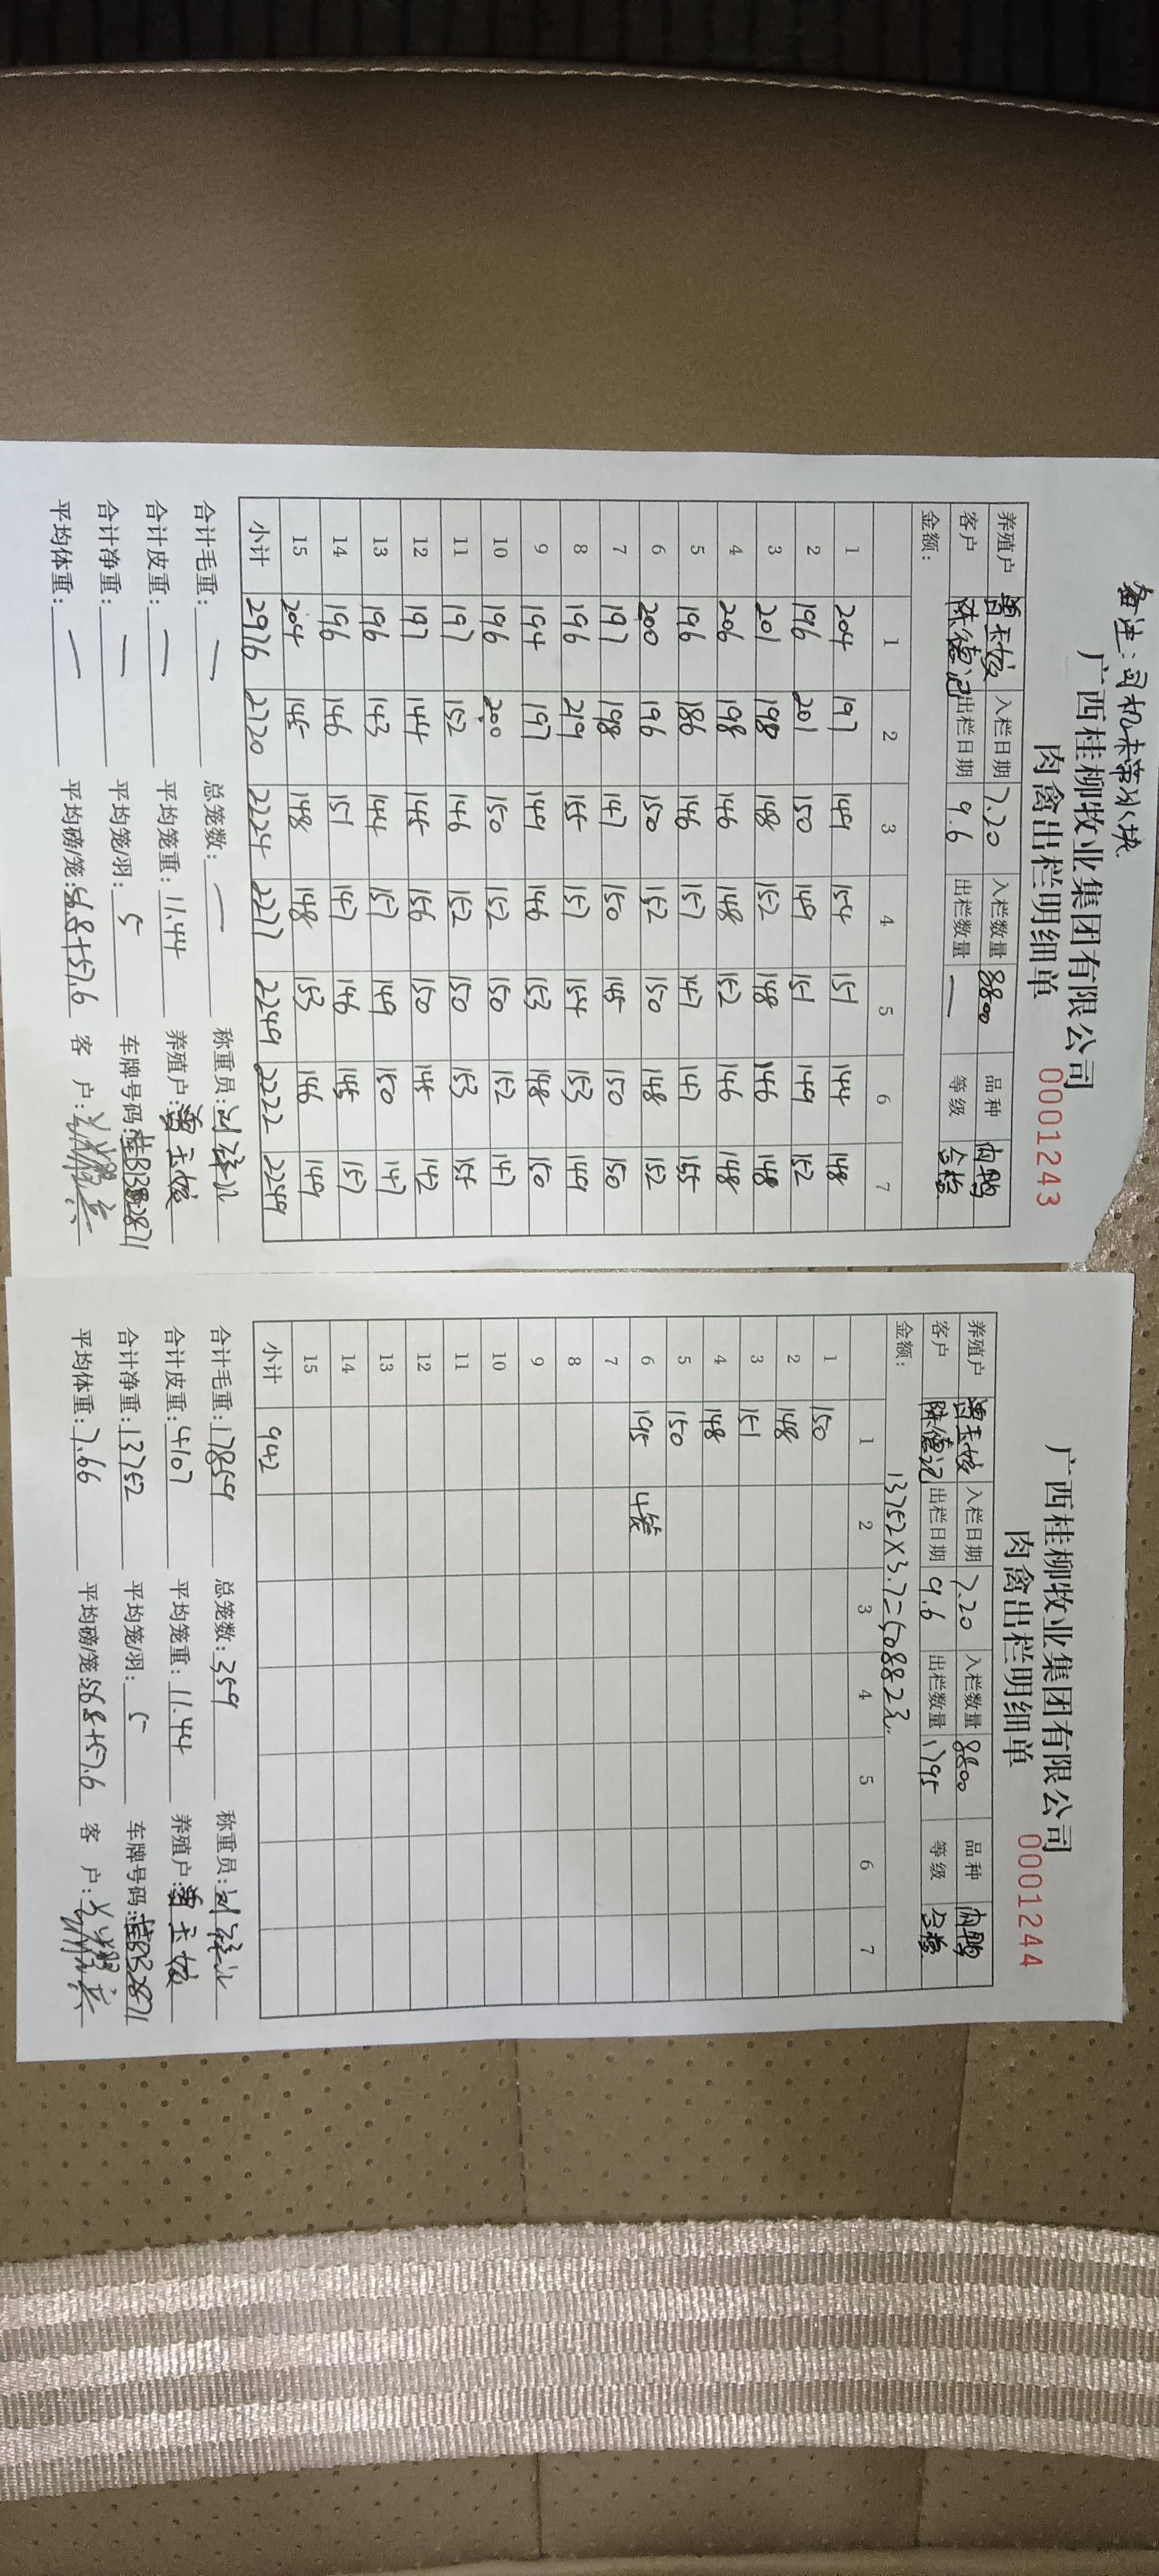 备注:司机未带水块
广西桂柳牧业集团有限公司
肉禽出栏明细单 0001243
养殖户 曾玉姣 入栏日期 7.20 入栏数量 8800 品种 肉鸭
客户 陈德记 出栏日期 9.6 出栏数量 — 等级 合格
金额:
1 2 3 4 5 6 7
1 204 197 149 154 151 144 148
2 196 201 150 149 151 149 152
3 201 198 148 152 148 146 148
4 206 198 146 148 152 146 148
5 196 186 146 157 147 147 155
6 200 196 150 152 150 148 152
7 197 198 147 150 145 150 150
8 196 219 155 157 154 153 149
9 194 197 149 146 153 148 150
10 196 200 150 152 150 152 147
11 197 152 146 152 150 153 155
12 197 144 145 156 150 145 142
13 196 143 144 157 149 150 147
14 196 146 151 147 146 145 157
15 204 145 148 148 153 146 149
小计 2976 2720 2224 2277 2249 2222 2249
合计毛重: — 总笼数: — 称重员:
合计皮重: — 平均笼重: 11.44 养殖户: 曾玉姣
合计净重: — 平均笼/羽: 5 车牌号码:
平均体重: — 平均磅/笼: 56.8+57.6 客 户:
广西桂柳牧业集团有限公司
肉禽出栏明细单 0001244
养殖户 曾玉姣 入栏日期 7.20 入栏数量 8800 品种 肉鸭
客户 陈德记 出栏日期 9.6 出栏数量 1795 等级 合格
金额: 13752×3.7=50882元.
1 2 3 4 5 6 7
1 150
2 148
3 151
4 148
5 150
6 195 4笼
7
8
9
10
11
12
13
14
15
小计 942
合计毛重: 17859 总笼数: 359 称重员:
合计皮重: 4107 平均笼重: 11.44 养殖户: 曾玉姣
合计净重: 13752 平均笼/羽: 5 车牌号码: 桂B32871
平均体重: 7.66 平均磅/笼: 56.8+57.6 客 户: